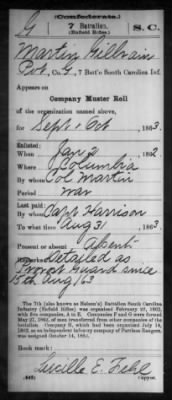 G
(Confederate.)
7 Battalion,
(Enfield Rifles.)
S. C.
Martin Gillrain
Pvt, Co. G, 7 Batt'n South Carolina Inf.
Appears on
Company Muster Roll
of the organization named above,
for Sept & Oct, 1863.
Enlisted:
When Jan 2, 1862.
Where Columbia
By whom Col Martin
Period war
Last paid:
By whom Capt Harrison
To what time Aug 31, 1863.
Present or absent Absent
Remarks: Detailed as
Provost Guard since
15th Aug /63
The 7th (also known as Nelson's) Battalion South Carolina
Infantry (Enfield Rifles) was organized February 22, 1862, with
five companies, A to E. Companies F and G were formed
May 1862, of men transferred from other companies of the
battalion. Company H, which had been organized July
1862, as an independent company of Partisan Rangers, was
assigned October 14, 1862.
Book mark:
Lucille E. Fehl
(642)
Copyist.